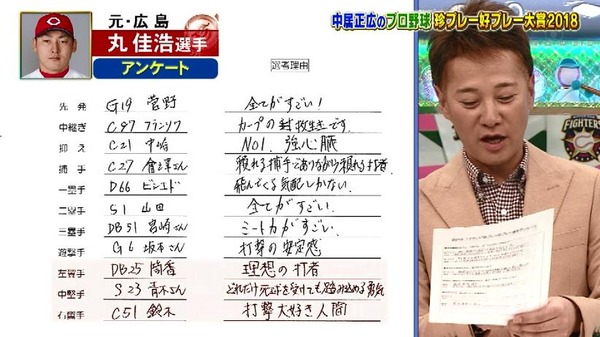 元・広島
丸 佳浩選手
アンケート
中居正広のプロ野球 珍プレー好プレー大賞2018
選考理由
先発 G19 菅野 全てがすごい!
中継ぎ C97 フランソワ カープの救世主です。
抑え C21 中崎 NO1. 強心臓
捕手 C27 會澤さん 頼れる捕手でありながら頼れる打者.
一塁手 D66 ビシエド 飛んでくる気配しかない.
二塁手 S1 山田 全てがすごい.
三塁手 DB51 宮﨑さん ミート力がすごい.
遊撃手 G6 坂本さん 打撃の安定感
左翼手 DB25 筒香 理想の打者
中堅手 S23 青木さん どれだけ死球を受けても踏み込める勇気
右翼手 C51 鈴木 打撃大好き人間
FIGHTERS